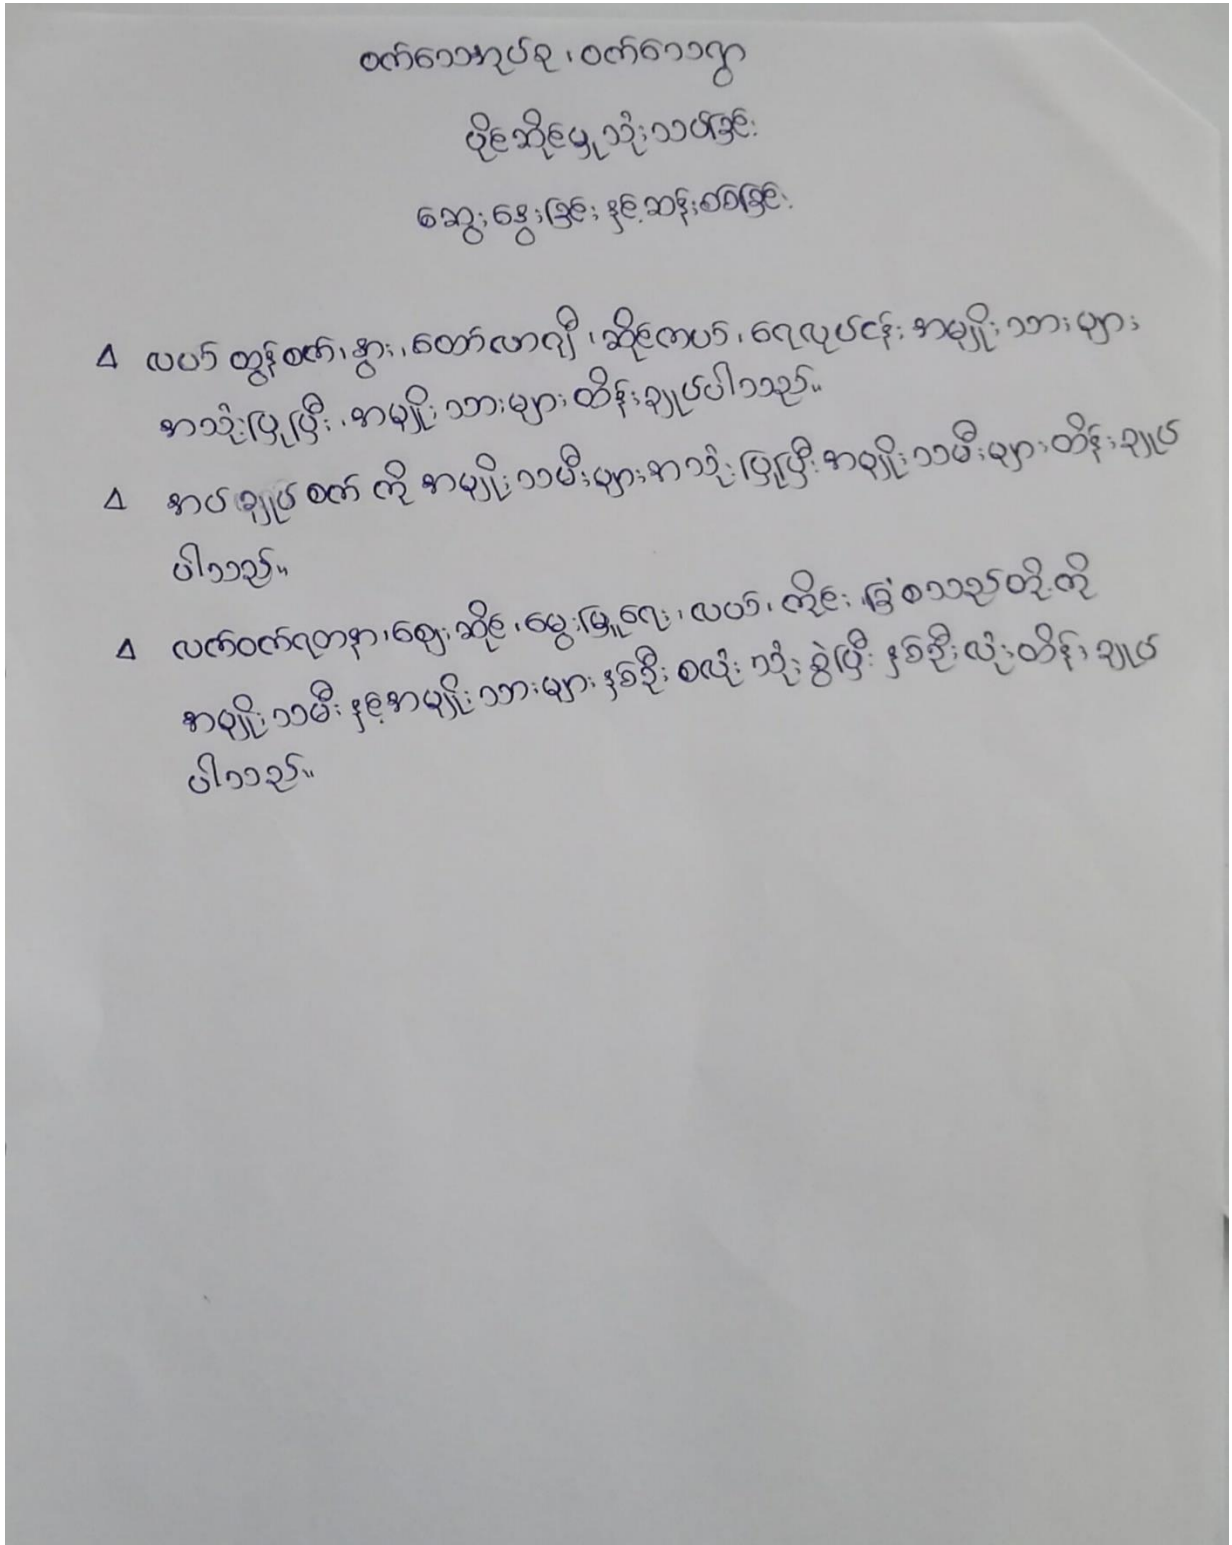 ဝက်သေအုပ်စု ၊ ဝက်သေရွာ
ပိုင်ဆိုင်မှု သုံးသပ်ခြင်း
ဆွေးနွေးခြင်း နှင့် ဆန်းစစ်ခြင်း
Δ လယ်ထွန်စက်၊ နွား၊ ထော်လာဂျီ ၊ ဆိုင်ကယ်၊ ရေလုပ်ငန်း အမျိုးသားများ
အသုံးပြုပြီး ၊ အမျိုးသားများ ထိန်းချုပ်ပါသည်။
Δ အပ်ချုပ်စက် ကို အမျိုးသမီးများ အသုံးပြုပြီး အမျိုးသမီးများ ထိန်းချုပ်
ပါသည်။
Δ လက်ဝတ်ရတနာ ၊ ဈေးဆိုင် ၊ မွေးမြူရေး ၊ လယ်၊ ကိုင်း ခြံ စသည်တို့ကို
အမျိုးသမီး နှင့် အမျိုးသားများ နှစ်ဦး စလုံး သုံးစွဲပြီး နှစ်ဦးလုံး ထိန်းချုပ်
ပါသည်။